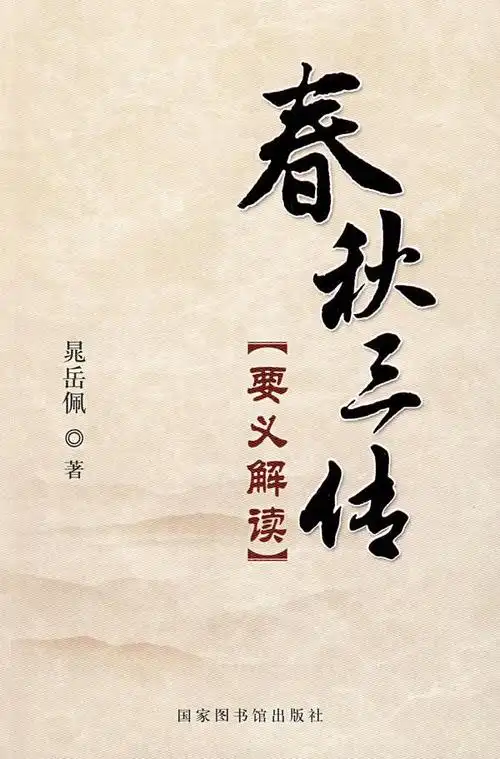 春秋三传
【要义解读】
晁岳佩◎著
国家图书馆出版社